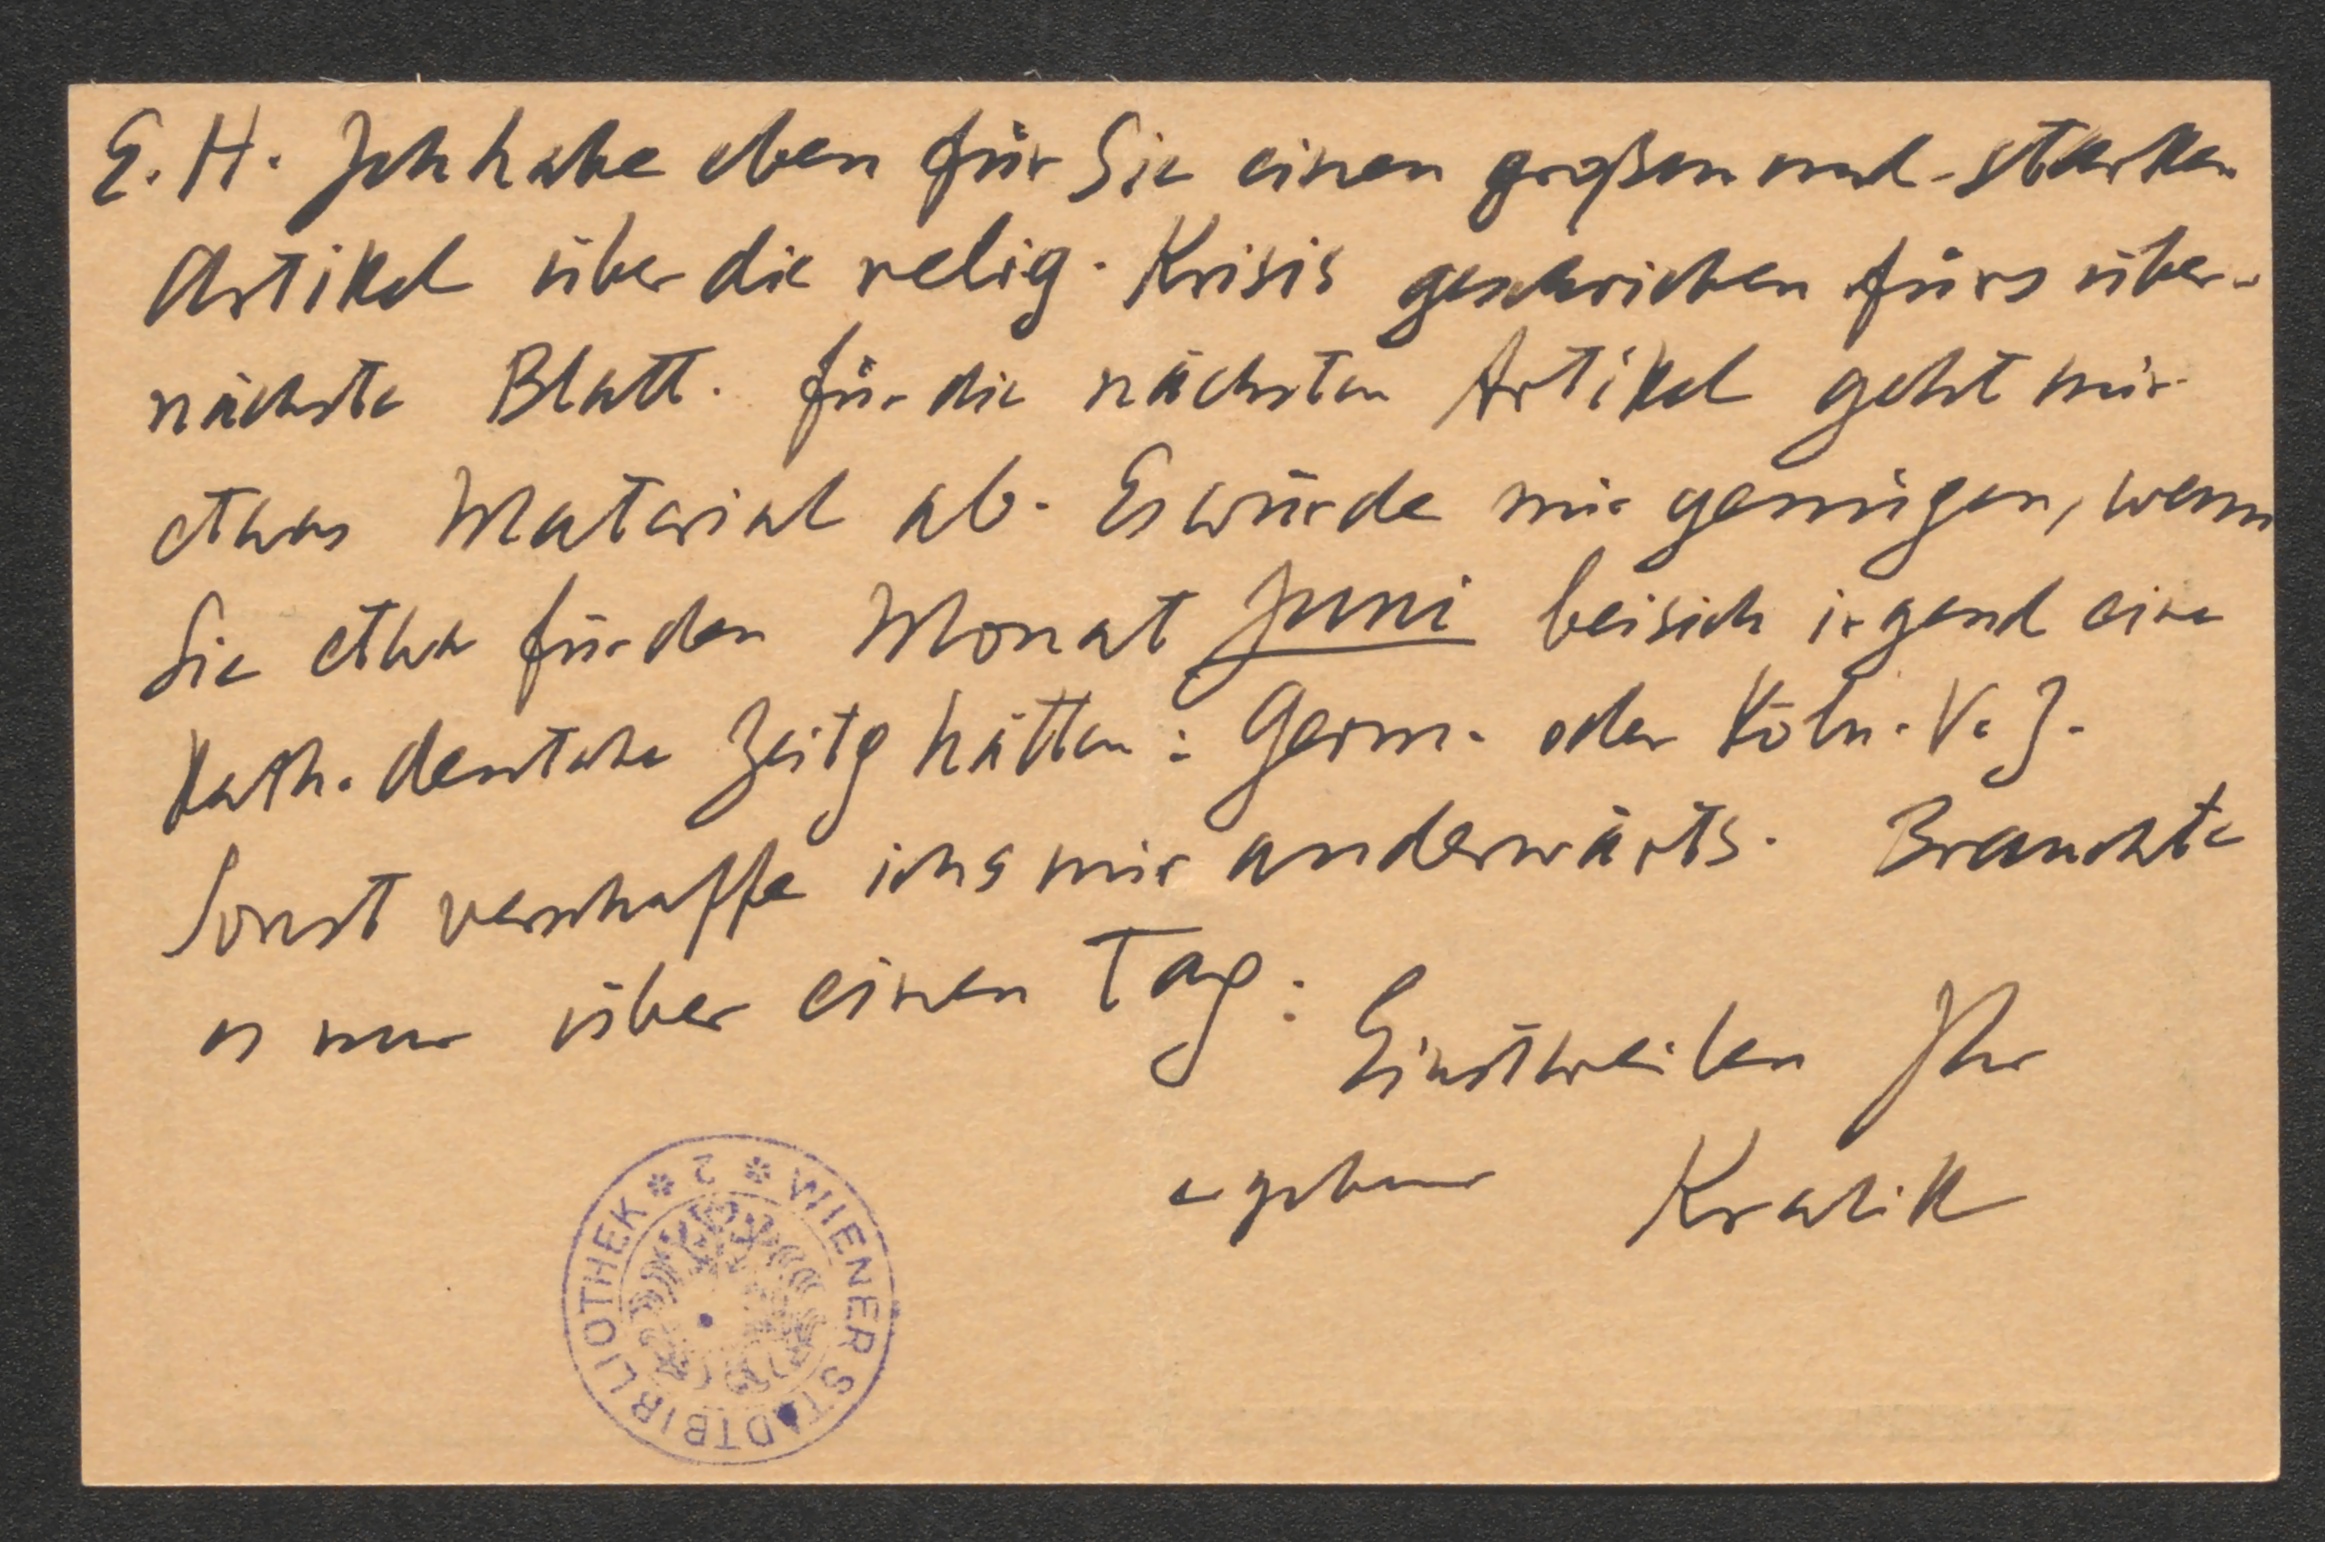 E. H. Ich habe eben für Sie einen großen und starken
Artikel über die relig. Krisis geschrieben fürs über-
nächste Blatt. Für die nächsten Artikel geht mir
etwas Material ab. Es würde mir genügen, wenn
Sie etwa für den Monat Juni bei sich irgend eine
kath. deutsche Zeitg hätten: Germ. oder Köln. V. Z.
Sonst verschaffe ichs mir anderwärts. Brauchte
es nur über einen Tag.
Einstweilen Ihr
ergebener Kralik
WIENER STADTBIBLIOTHEK * 2 *